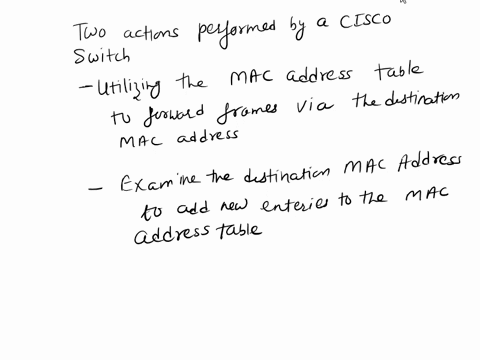 Two actions performed by a CISCO
Switch
- Utilizing the MAC address table
to forward frames via the destination
MAC address
- Examine the destination MAC Address
to add new enteries to the MAC
address table